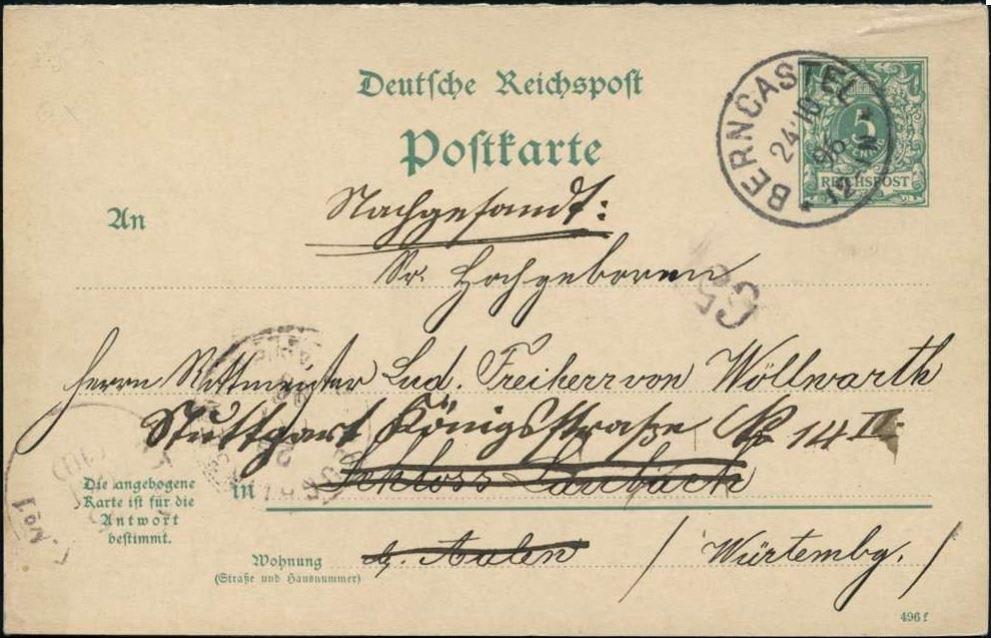 Deutsche Reichspost
Postkarte
BERNCASTEL
24.10
96
12-1N
5
REICHSPOST
An
Nachgesandt:
Sr. Hochgeboren
G5
Herrn Rittmeister Lud. Freiherr von Wöllwarth
Stuttgart Königsstraße No 14 II.
in Schloss Laubach
Die angebogene
Karte ist für die
Antwort
bestimmt.
Wohnung
(Straße und Hausnummer)
b. Aalen / Würtembg. /
No 1
496 f